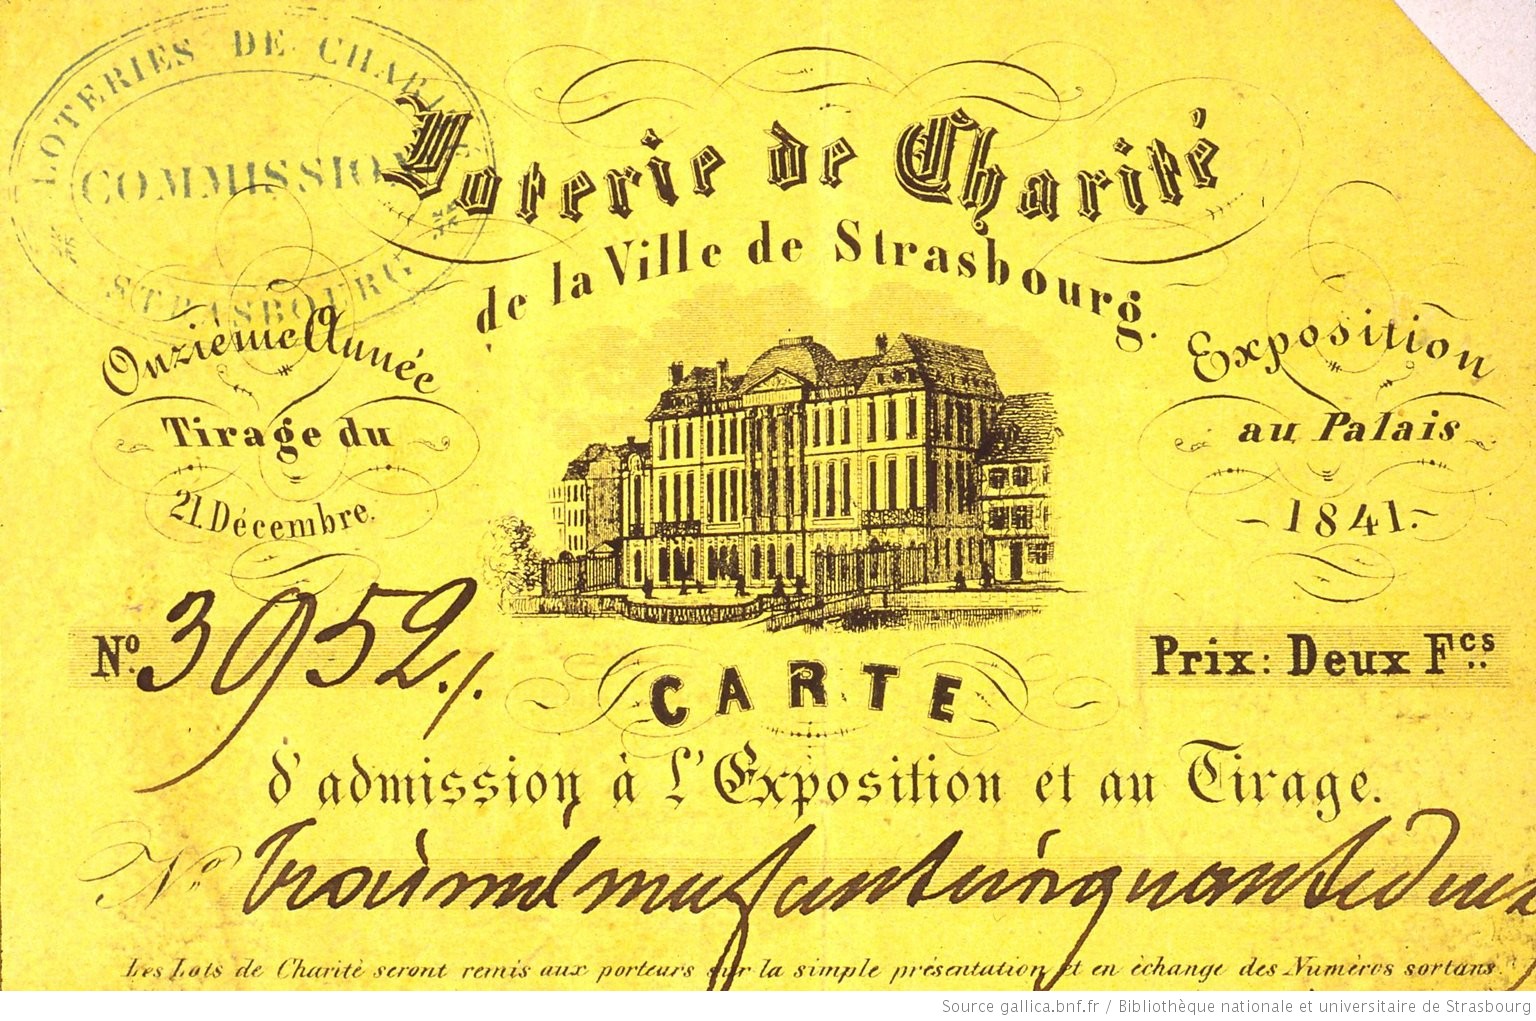 LOTERIES DE CHARITÉ
COMMISSION
STRASBOURG
Loterie de Charité
de la Ville de Strasbourg.
Onzième Année
Tirage du
21 Décembre.
Exposition
au Palais
1841.
No. 3952./.
Prix: Deux Fcs
CARTE
d'admission à l'Exposition et au Tirage.
No trois mil neuf cent cinquante deux
Les Lots de Charité seront remis aux porteurs sur la simple présentation et en èchange des Numèros sortans.
Source gallica.bnf.fr / Bibliothèque nationale et universitaire de Strasbourg